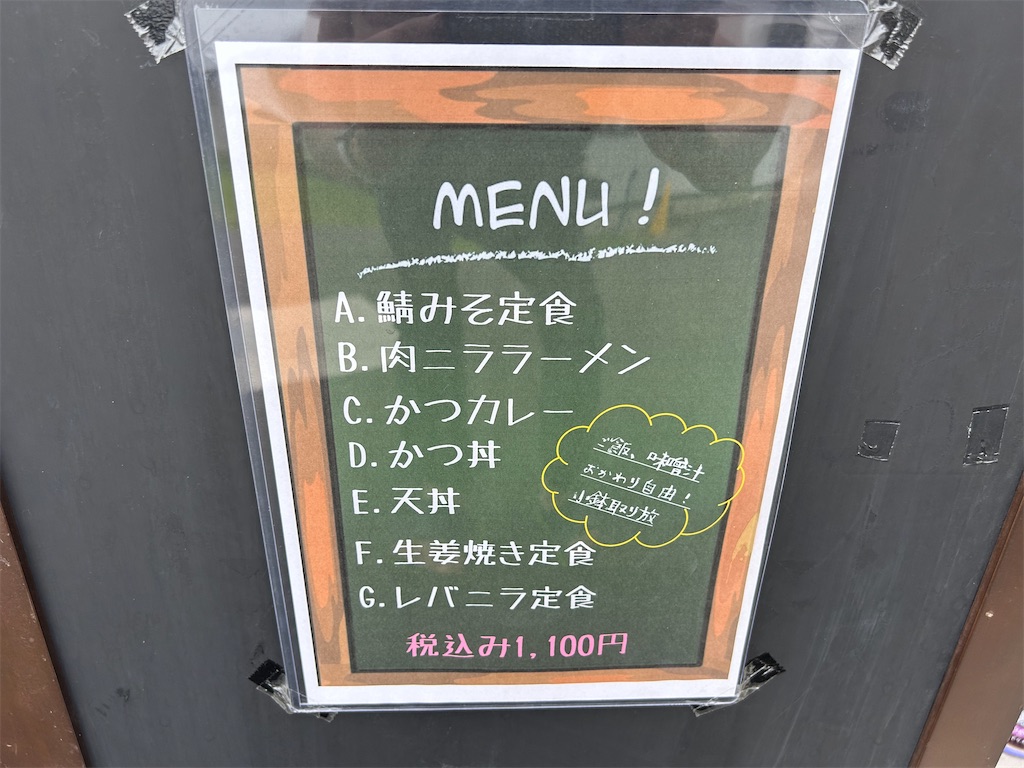 MENU!
A.鯖みそ定食
B.肉ニララーメン
C.かつカレー
D.かつ丼
E.天丼
ご飯、味噌汁
おかわり自由!
小鉢取り放
F.生姜焼き定食
G.レバニラ定食
税込み1,100円